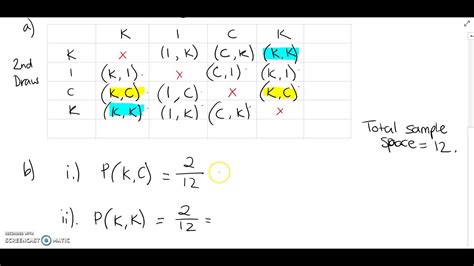 a)
K I C K
2nd Draw
K x (I, K) (C, K) (K, K)
I (K, I) x (C, I) (K, I)
C (K, C) (I, C) x (K, C)
K (K, K) (I, K) (C, K) x
Total sample
space = 12.
b) i.) P(K, C) = 2/12
ii). P(K, K) = 2/12 =
RECORDED WITH
SCREENCAST-O-MATIC